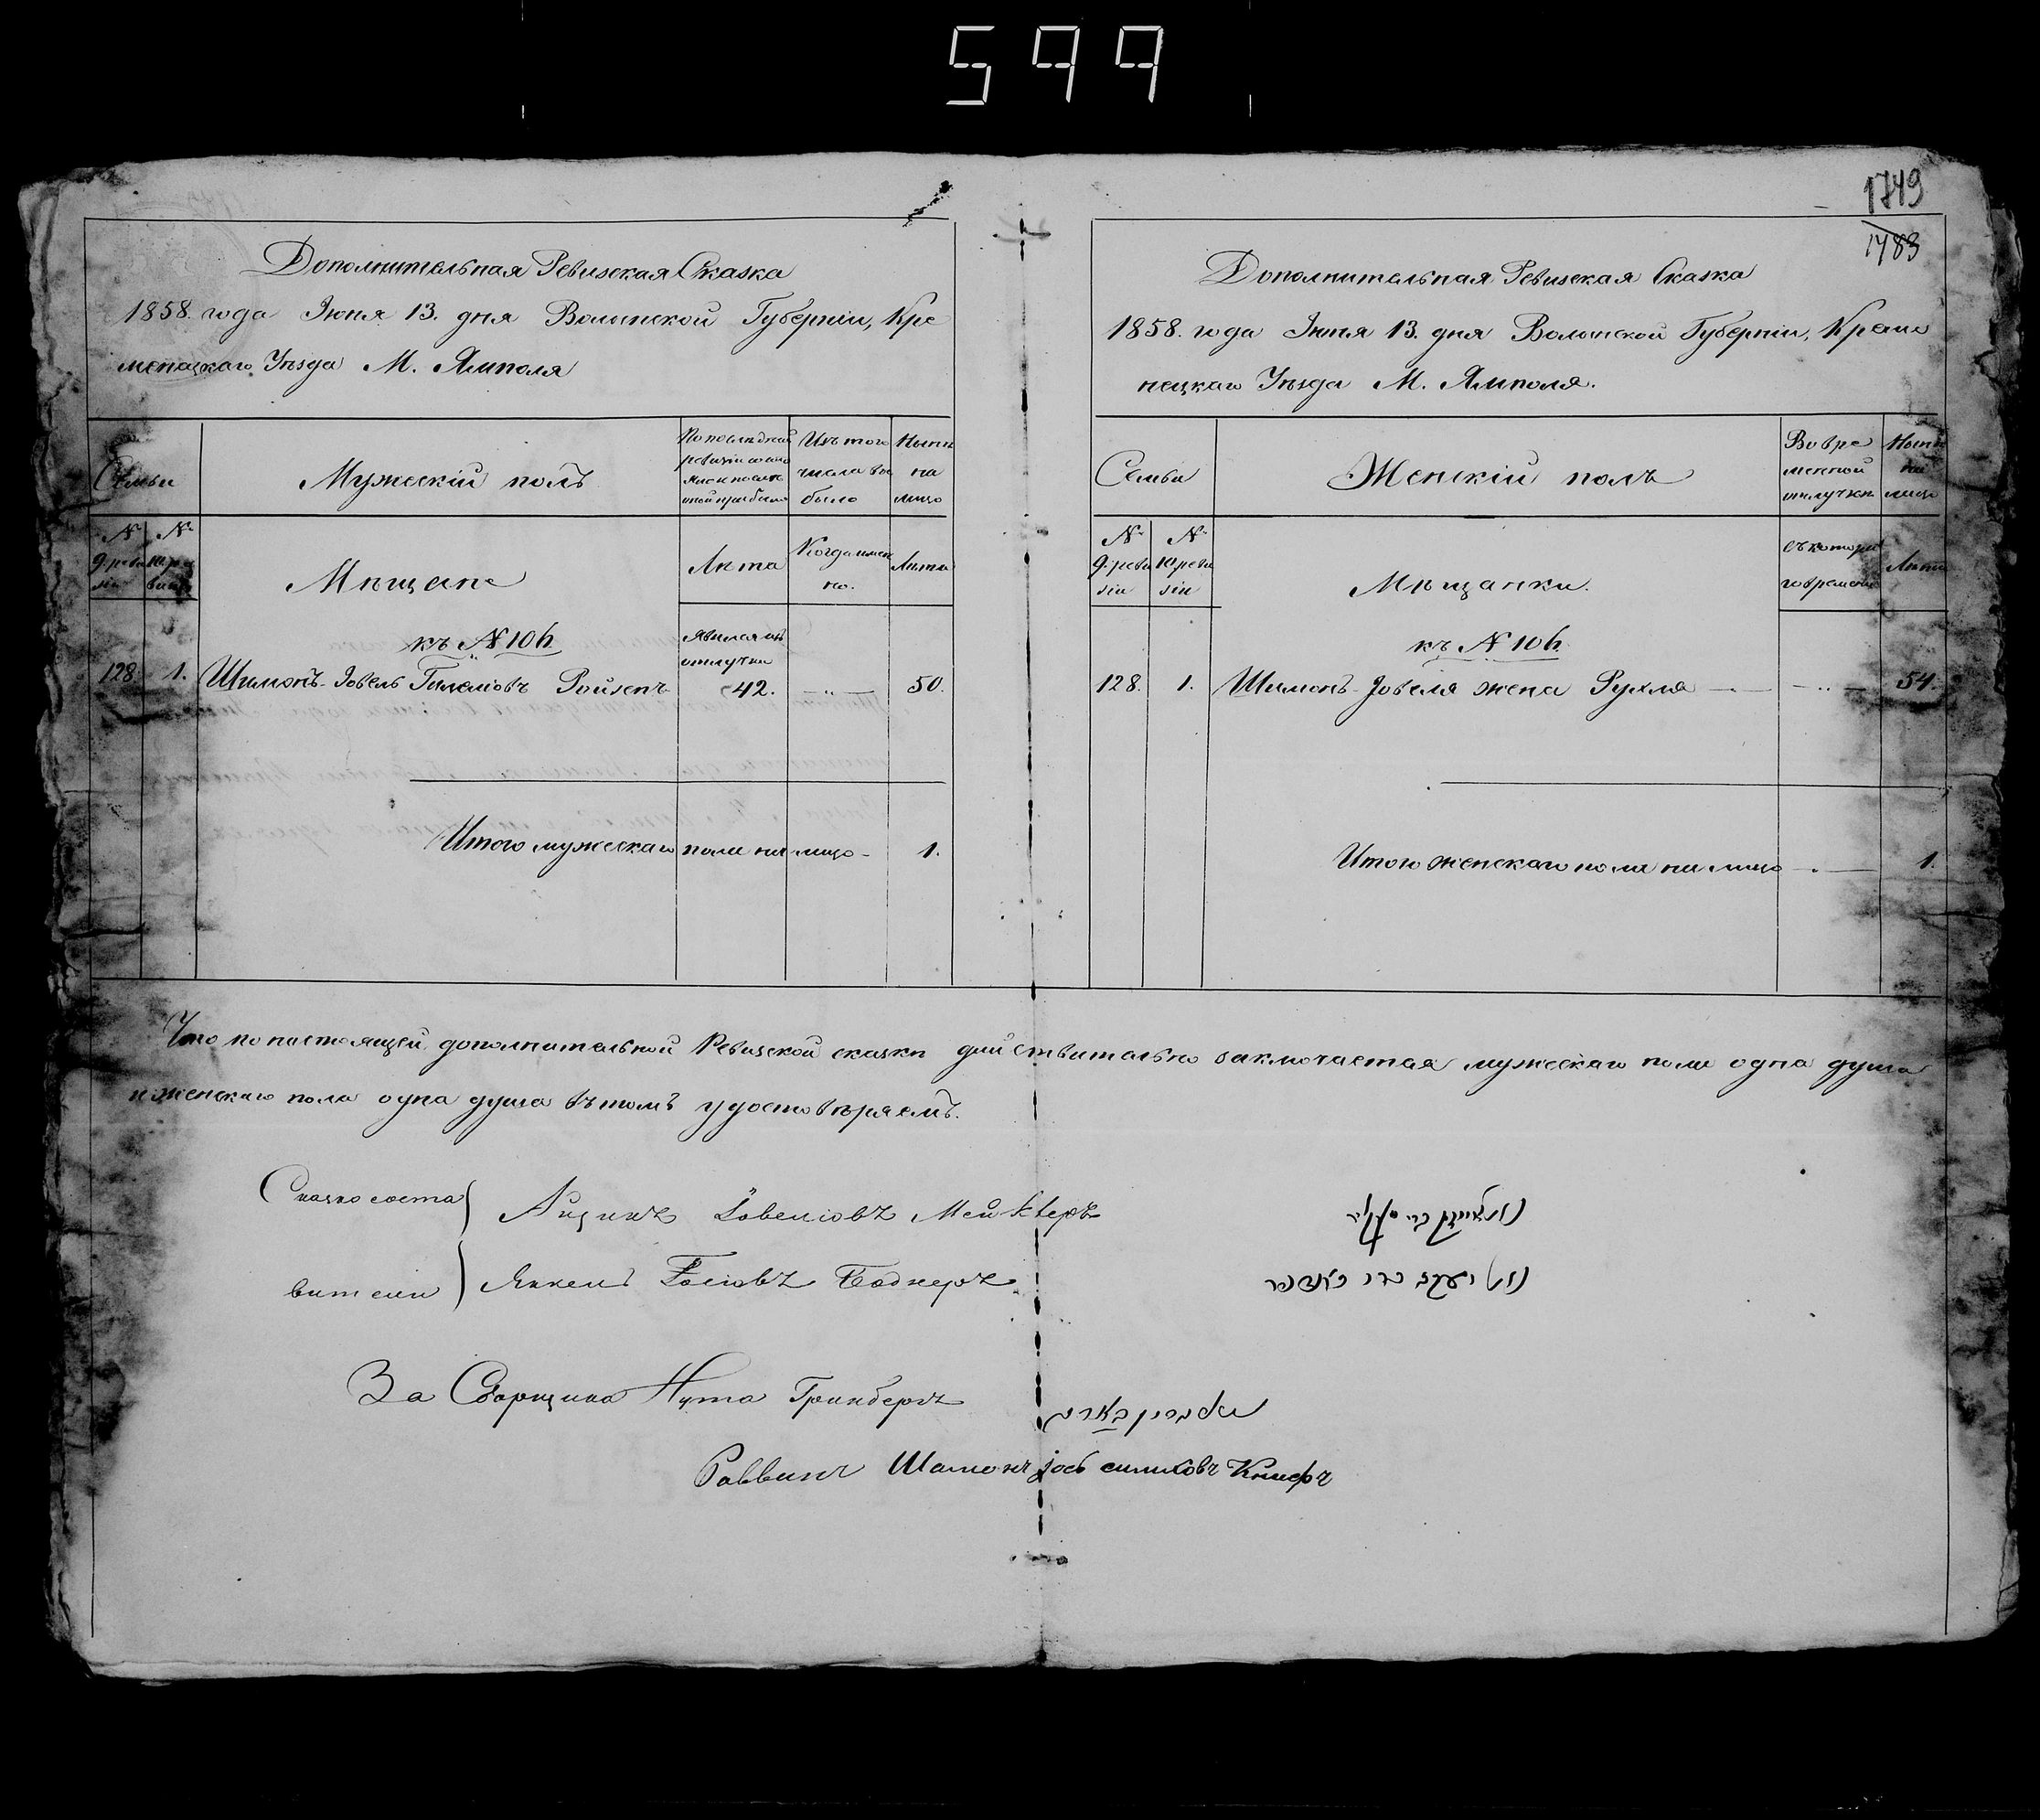 599
1749
1783
Дополнительная Ревизская Сказка
1858 года Июня 13. дня Волынской Губерніи, Кре
менецкаго Уѣзда М. Ямполя
Семьи
Мужескій полъ
По послѣдней
Изъ того
числа вы
было
Нынѣ
на
лицо
№
9 реви
зіи
№
10 ре
визіи
Мѣщане
Лѣта
Когда имен
но.
Лѣта
къ № 106.
Явился изъ
отлучки
128. 1. Шимонъ-Іовель Ройзенъ 42. — " — 50.
Итого мужескаго пола на лицо - 1.
Дополнительная Ревизская Сказка
1858. года Июня 13. дня Волынской Губерніи, Креме
нецкаго Уѣзда М. Ямполя.
Семьи
Женскій полъ
Во вре
менной
отлучкѣ
Нынѣ
на
лицо
№
9. реви
зіи
№
10 реви
зіи
Мѣщанки.
съ котора
го времени
Лѣта
къ № 106.
128. 1. Шимонъ-Іовеля жена Рухля — — " — 54.
Итого женскаго пола на лицо — 1.
Что по настоящей дополнительной Ревизской сказки дѣйствительно заключается мужескаго пола одна душа
и женскаго пола одна душа въ томъ удостовѣряемъ.
Сказко соста
вители
Іовеліовъ
Янкель Боднеръ
За Сборщика Нута Гринбергъ
Раввинъ Шамонъ